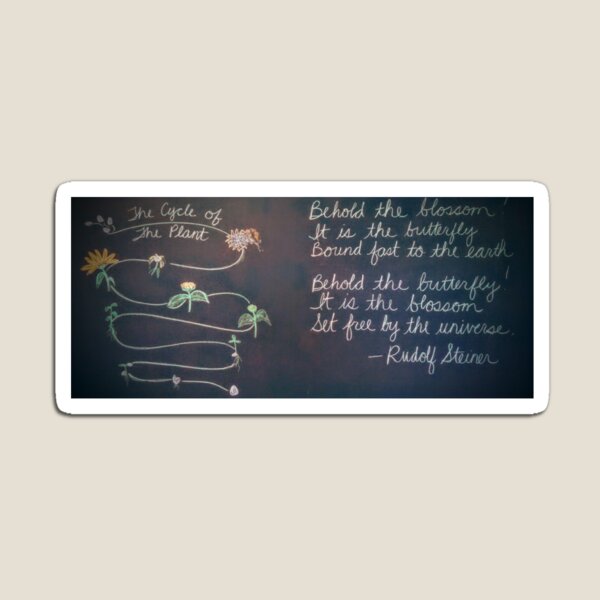 The Cycle of
The Plant
Behold the blossom!
It is the butterfly
Bound fast to the earth
Behold the butterfly!
It is the blossom
Set free by the universe.
— Rudolf Steiner